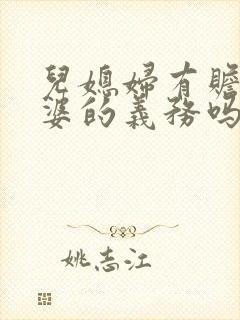 兒媳婦有贍
婆的義務嗎
姚志江